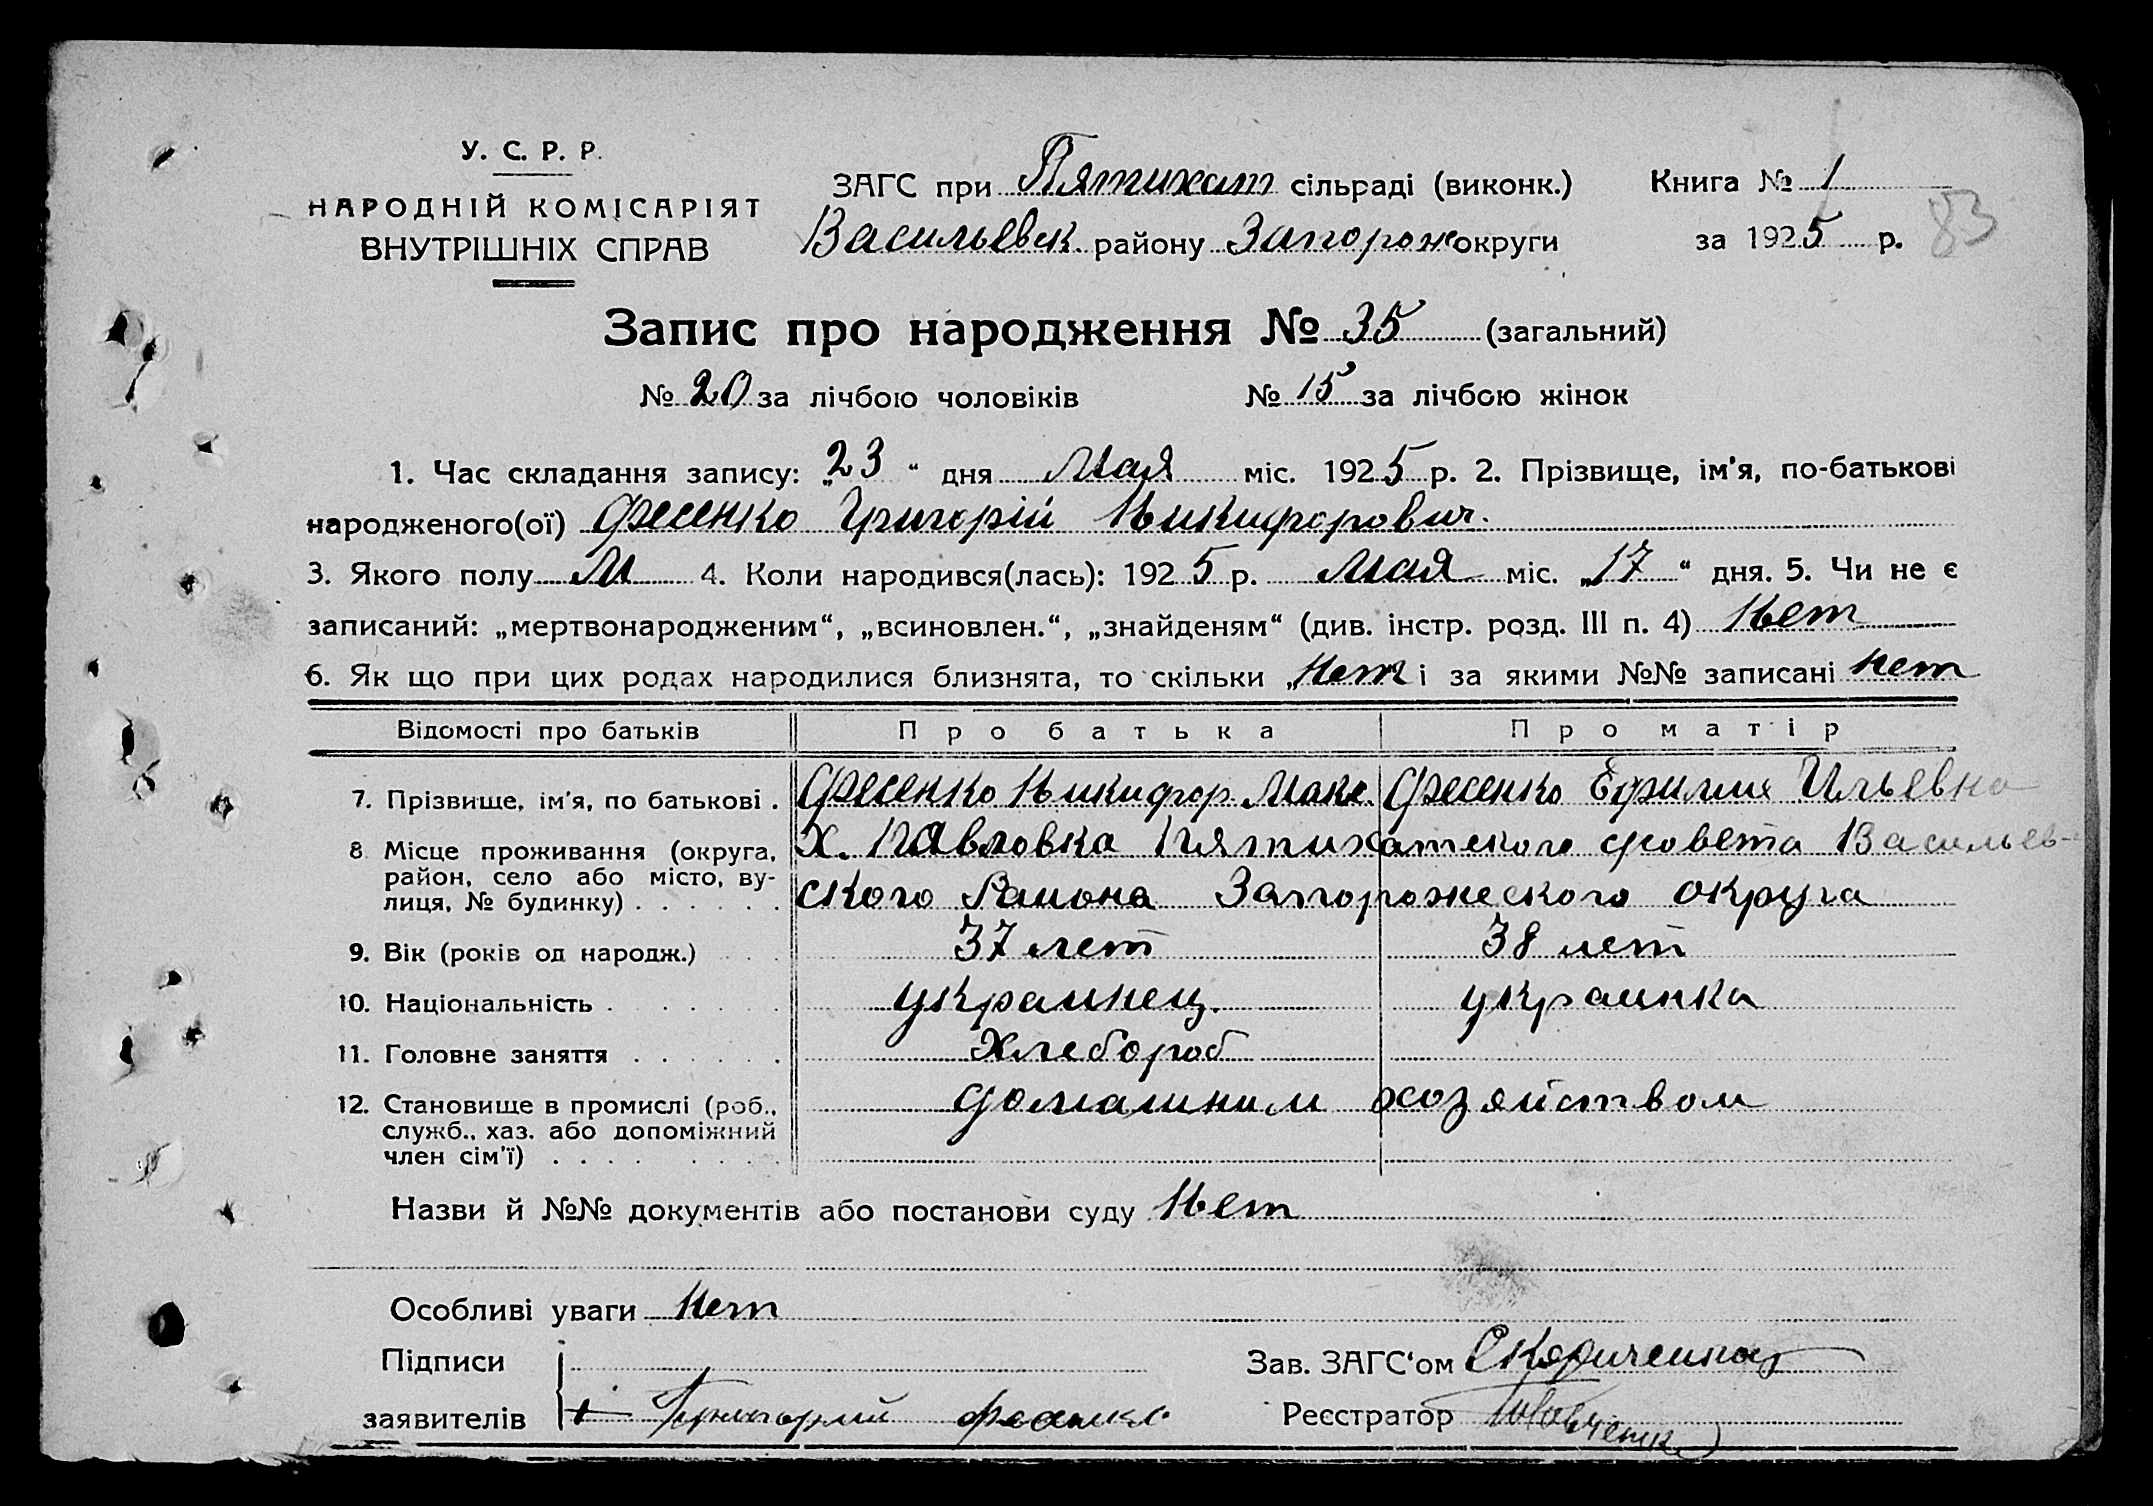 У. С. Р. Р.
НАРОДНІЙ КОМІСАРІЯТ
ВНУТРІШНІХ СПРАВ
ЗАГС при Пятихат сільраді (виконк.) Книга № 1
Васильевск району Запорож округи за 1925 р. 83
Запис про народження № 35 (загальний)
№ 20 за лічбою чоловіків № 15 за лічбою жінок
1. Час складання запису: „23“ дня Мая міс. 1925 р. 2. Прізвище, ім'я, по-батькові
народженого(ої) Фесенко Григорій Никифорович.
3. Якого полу М 4. Коли народився(лась): 1925 р. Мая міс. „17“ дня. 5. Чи не є
записаний: „мертвонародженим“, „всиновлен.“, „знайденям“ (див. інстр. розд. III п. 4) Нет
6. Як що при цих родах народилися близнята, то скільки „Нет і за якими №№ записані нет
Відомості про батьків Про батька Про матір
7. Прізвище, ім'я, по батькові . Фесенко Никифор Макс. Фесенко Ефимия Ильевна
8. Місце проживання (округа, х. Павловка Пятихатского с/совета Васильев-
район, село або місто, ву-
лиця, № будинку) . . . . . . ского Района Запорожеского округа
9. Вік (років од народж.) . . . 37 лет 38 лет
10. Національність . . . . . . украинец. украинка
11. Головне заняття . . . . . . Хлебороб
12. Становище в промислі (роб., домашним хозяйством
служб., хаз. або допоміжний
член сім'ї) . . . . . . . .
Назви й №№ документів або постанови суду Нет
Особливі уваги Нет
Підписи Зав. ЗАГС'ом
заявителів + Реєстратор